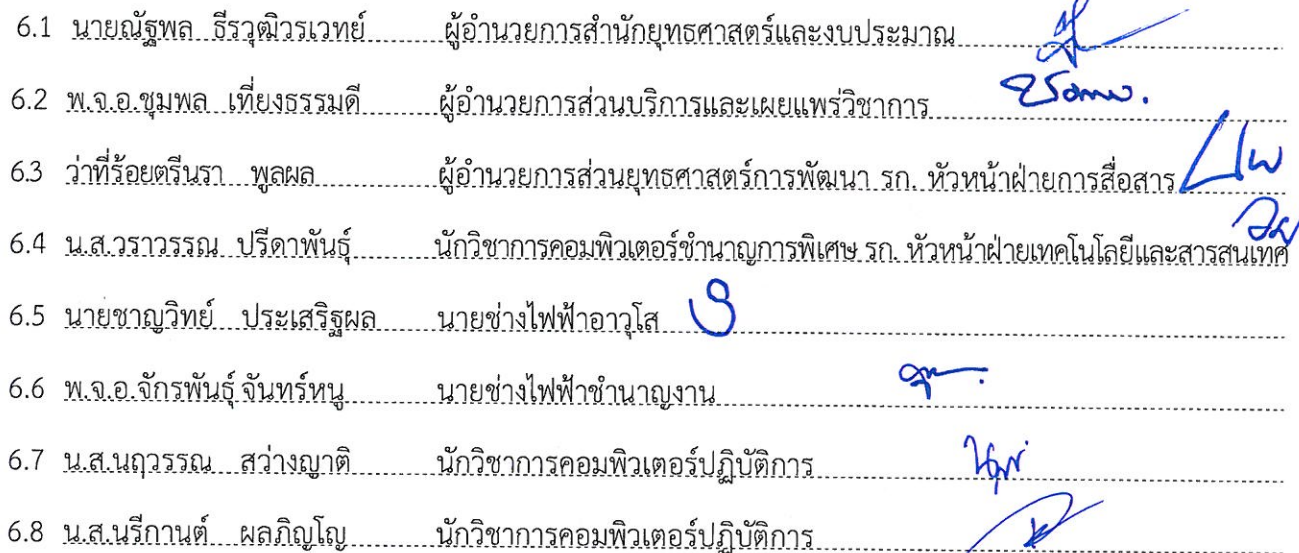 6.1 นายณัฐพล ธีรวุฒิวรเวทย์ ผู้อำนวยการสำนักยุทธศาสตร์และงบประมาณ
6.2 พ.จ.อ.ชุมพล เที่ยงธรรมดี ผู้อำนวยการส่วนบริการและเผยแพร่วิชาการ
6.3 ว่าที่ร้อยตรีนรา พูลผล ผู้อำนวยการส่วนยุทธศาสตร์การพัฒนา รก. หัวหน้าฝ่ายการสื่อสาร
6.4 น.ส.วราวรรณ ปรีดาพันธุ์ นักวิชาการคอมพิวเตอร์ชำนาญการพิเศษ รก. หัวหน้าฝ่ายเทคโนโลยีและสารสนเทศ
6.5 นายชาญวิทย์ ประเสริฐผล นายช่างไฟฟ้าอาวุโส
6.6 พ.จ.อ.จักรพันธุ์ จันทร์หนู นายช่างไฟฟ้าชำนาญงาน
6.7 น.ส.นฤวรรณ สว่างญาติ นักวิชาการคอมพิวเตอร์ปฏิบัติการ
6.8 น.ส.นรีกานต์ ผลภิญโญ นักวิชาการคอมพิวเตอร์ปฏิบัติการ